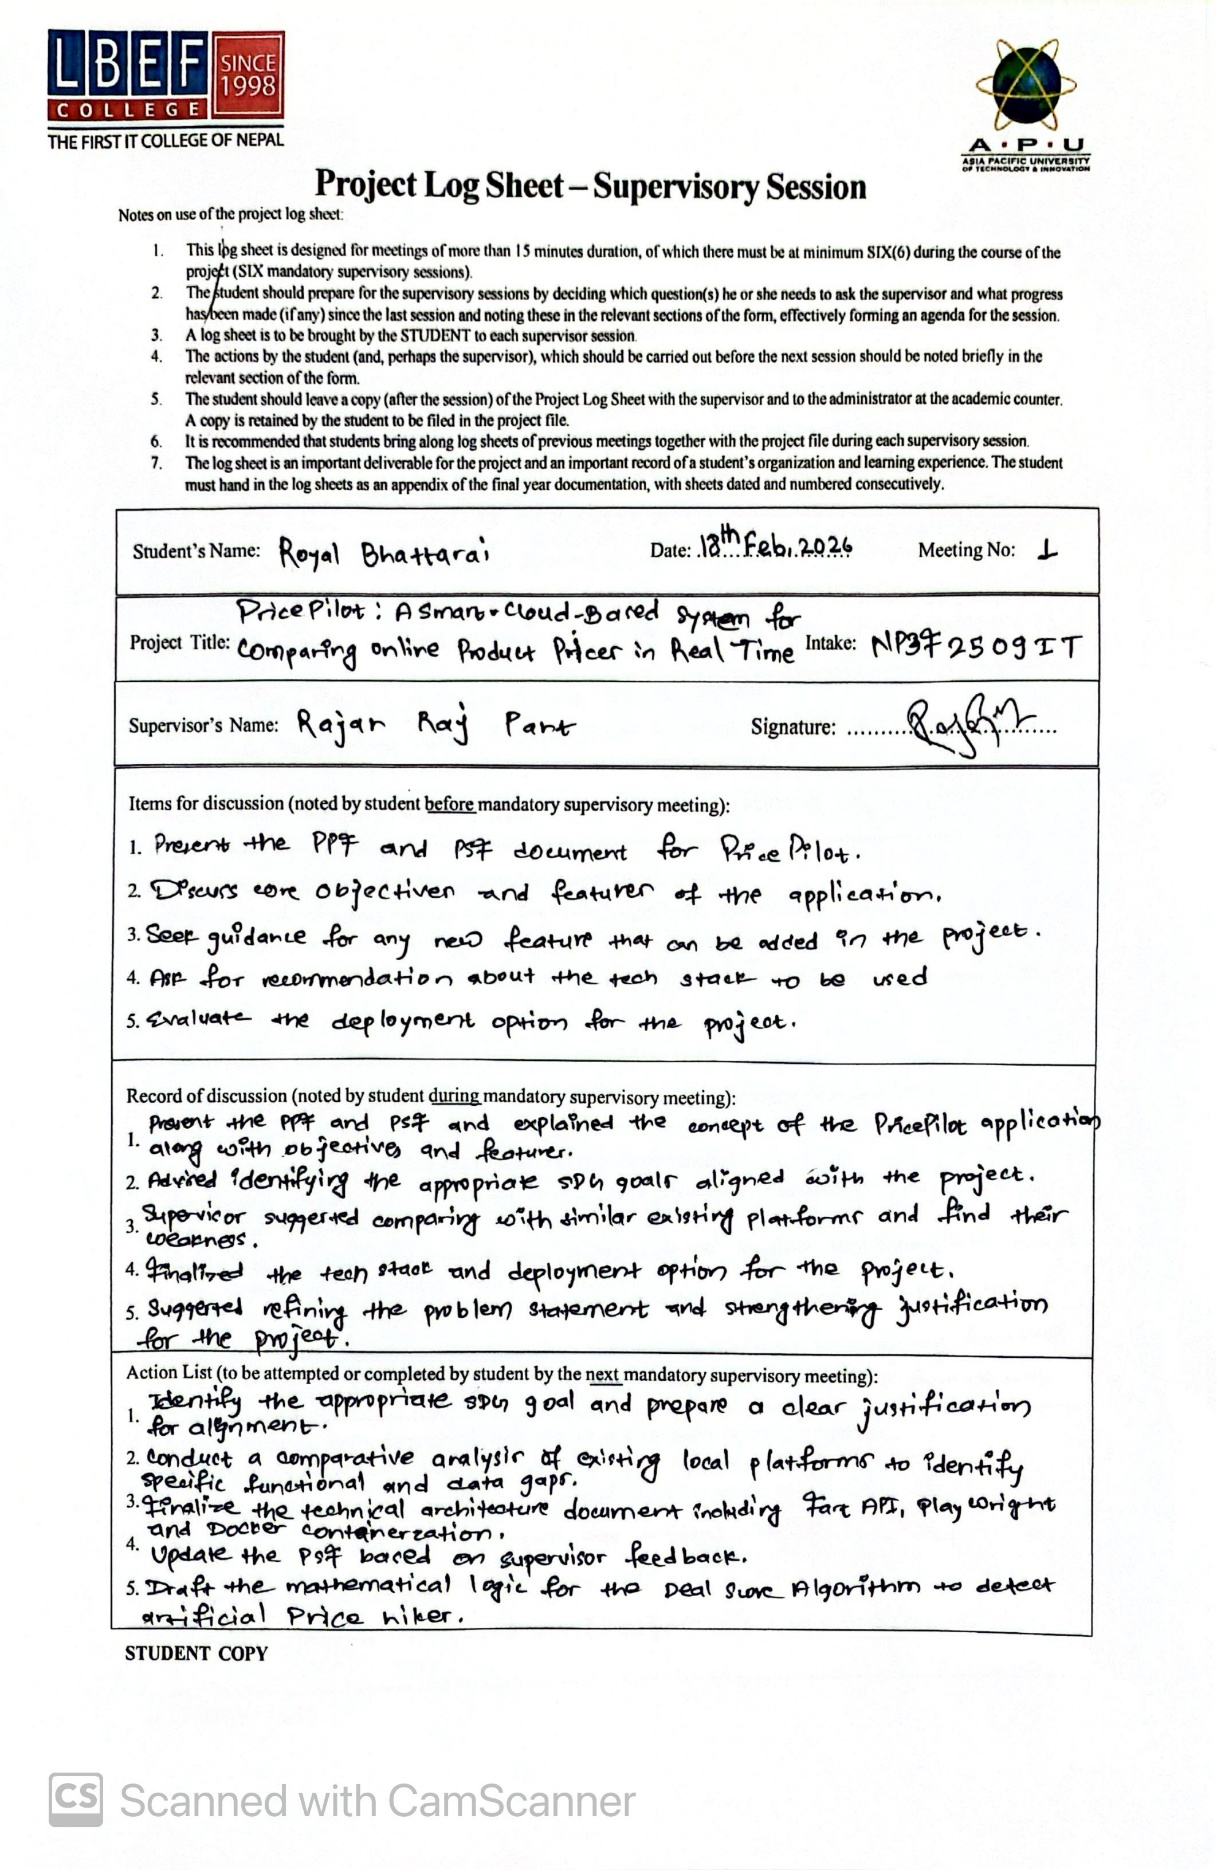 LBEF
COLLEGE
SINCE
1998
THE FIRST IT COLLEGE OF NEPAL
A • P • U
ASIA PACIFIC UNIVERSITY
OF TECHNOLOGY & INNOVATION
Project Log Sheet – Supervisory Session
Notes on use of the project log sheet:
1. This log sheet is designed for meetings of more than 15 minutes duration, of which there must be at minimum SIX(6) during the course of the
project (SIX mandatory supervisory sessions).
2. The student should prepare for the supervisory sessions by deciding which question(s) he or she needs to ask the supervisor and what progress
has been made (if any) since the last session and noting these in the relevant sections of the form, effectively forming an agenda for the session.
3. A log sheet is to be brought by the STUDENT to each supervisor session.
4. The actions by the student (and, perhaps the supervisor), which should be carried out before the next session should be noted briefly in the
relevant section of the form.
5. The student should leave a copy (after the session) of the Project Log Sheet with the supervisor and to the administrator at the academic counter.
A copy is retained by the student to be filed in the project file.
6. It is recommended that students bring along log sheets of previous meetings together with the project file during each supervisory session.
7. The log sheet is an important deliverable for the project and an important record of a student's organization and learning experience. The student
must hand in the log sheets as an appendix of the final year documentation, with sheets dated and numbered consecutively.
Student's Name: Royal Bhattarai Date: 18th Feb, 2026 Meeting No: 1
PricePilot: A Smart Cloud-Based System for
Project Title: Comparing Online Product Prices in Real Time Intake: NP3F2509IT
Supervisor's Name: Rajan Raj Pant Signature: ..........
Items for discussion (noted by student before mandatory supervisory meeting):
1. Present the PPF and PSF document for PricePilot.
2. Discuss core objectives and features of the application.
3. Seek guidance for any new feature that can be added in the project.
4. Ask for recommendation about the tech stack to be used
5. Evaluate the deployment option for the project.
Record of discussion (noted by student during mandatory supervisory meeting):
1. Present the PPF and PSF and explained the concept of the PricePilot application
along with objectives and features.
2. Advised identifying the appropriate SDG goals aligned with the project.
3. Supervisor suggested comparing with similar existing platforms and find their
weakness.
4. Finalized the tech stack and deployment option for the project.
5. Suggested refining the problem statement and strengthening justification
for the project.
Action List (to be attempted or completed by student by the next mandatory supervisory meeting):
1. Identify the appropriate SDG goal and prepare a clear justification
for alignment.
2. Conduct a comparative analysis of existing local platforms to identify
specific functional and data gaps.
3. Finalize the technical architecture document including Fast API, Playwright
and Docker containerzation.
4. Update the PSF based on supervisor feedback.
5. Draft the mathematical logic for the Deal Score Algorithm to detect
artificial Price hikes.
STUDENT COPY
CS Scanned with CamScanner